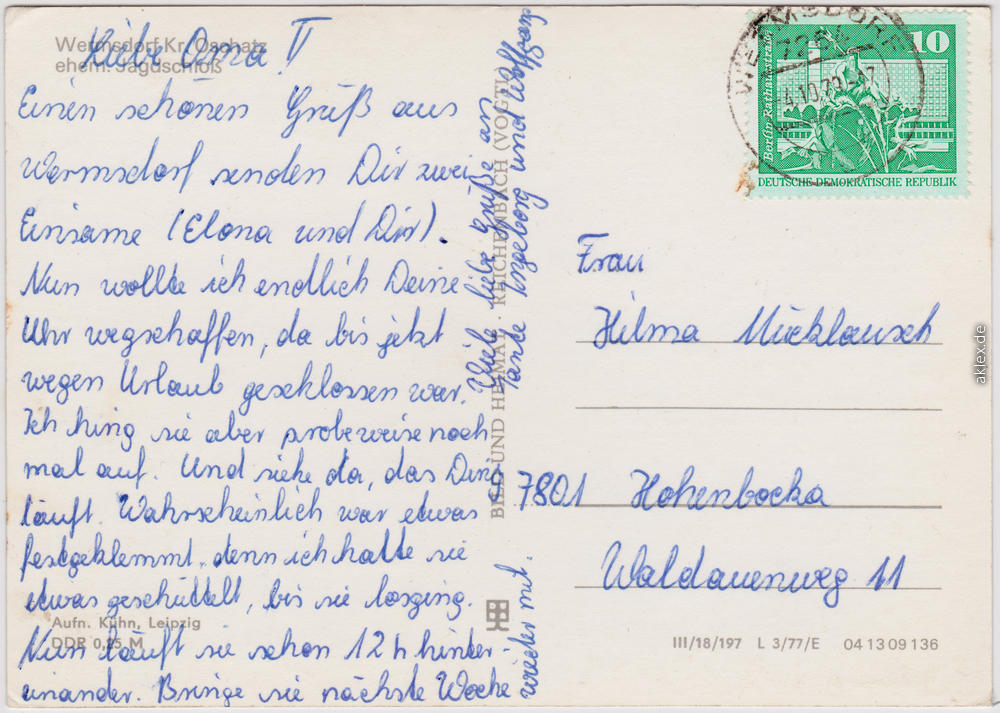 Wermsdorf Kr. Oschatz
ehem. Jagdschloß
Liebe Oma!
Einen schönen Gruß aus
Wermsdorf senden Dir zwei
Einsame (Elona und Dir).
Nun wollte ich endlich Deine
Uhr wegschaffen, da bis jetzt
wegen Urlaub geschlossen war.
Ich hing sie aber probeweise noch
mal auf. Und siehe da, das Ding
läuft. Wahrscheinlich war etwas
festgeklemmt, denn ich hatte sie
etwas geschüttelt, bis sie losging.
Nun läuft sie schon 12 h hinter-
einander. Bringe sie nächste Woche
wieder mit.
Viele liebe Grüße an
Tante Ingeborg und Wolfgang
Aufn. Kühn, Leipzig
DDR 0,25 M
BILD UND HEIMAT · REICHENBACH (VOGTL)
WERMSDORF
7264
-4.10.79-17
Berlin-Rathausstraße
10
DEUTSCHE DEMOKRATISCHE REPUBLIK
Frau
Hilma Micklausch
7801 Hohenbocka
Waldauenweg 11
III/18/197 L 3/77/E 04 13 09 136
aklex.de